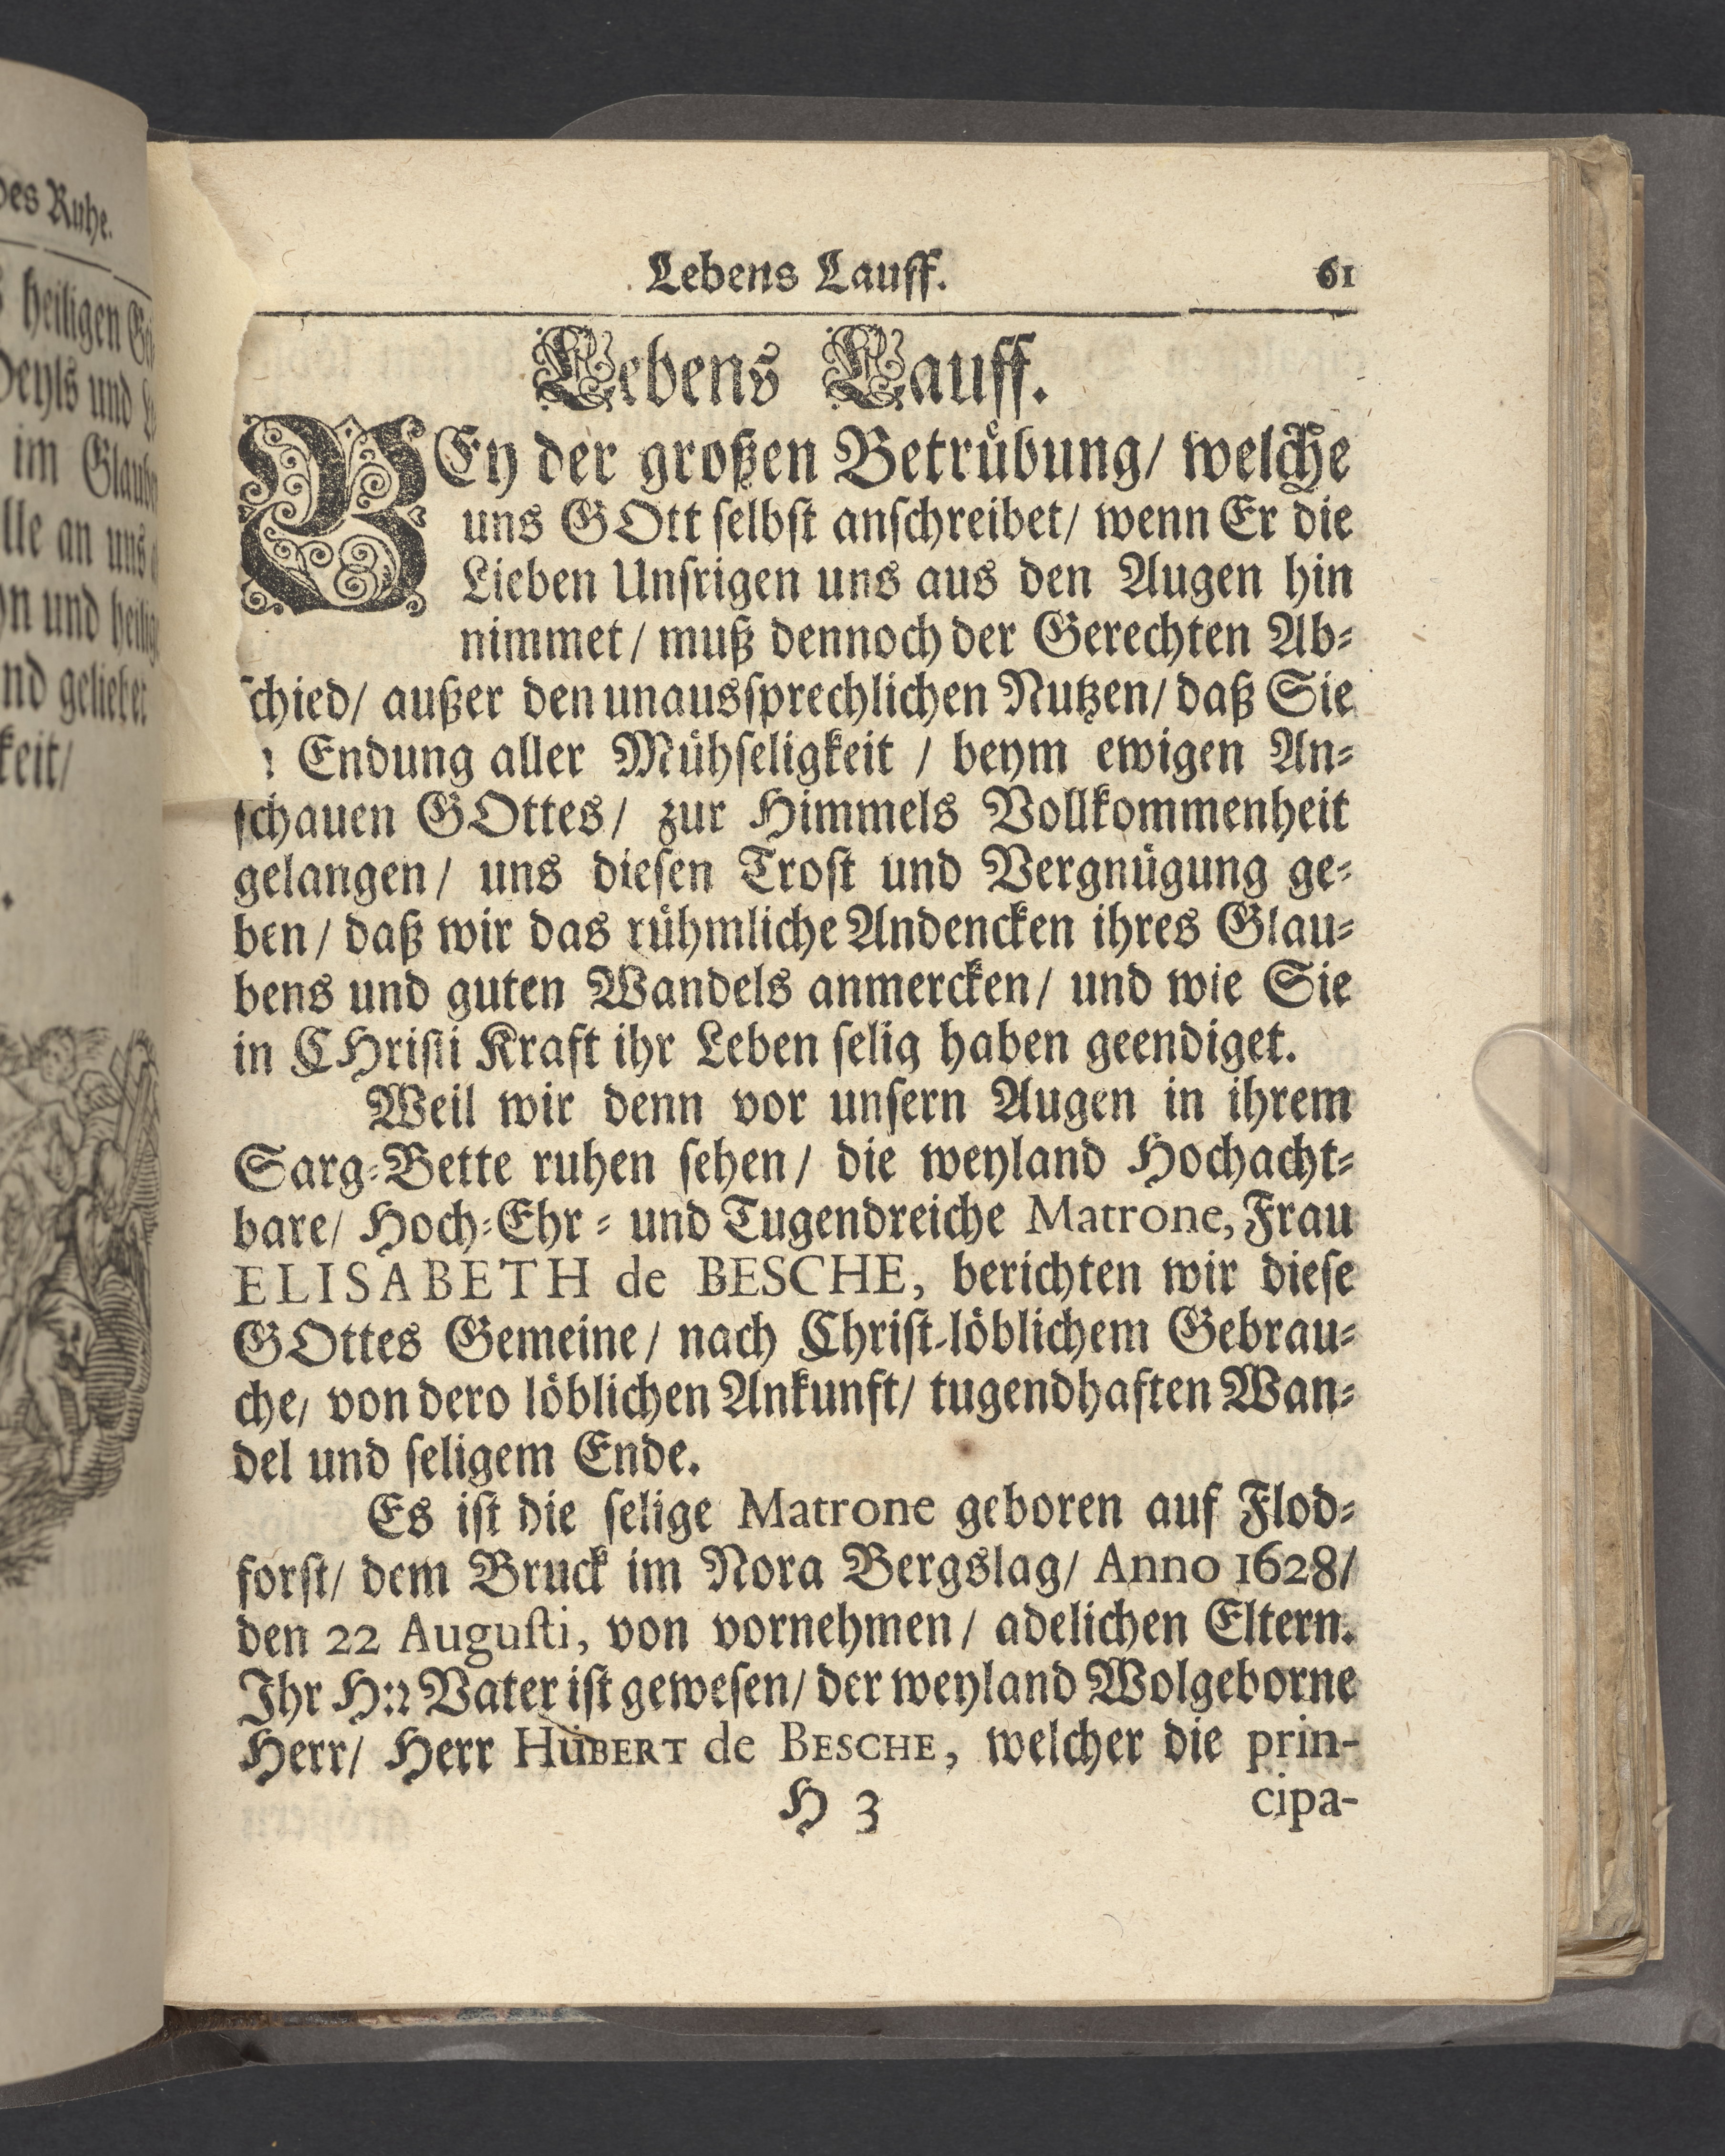 des Ruhe.
heiligen
und
im
lle an uns
und
nd geliebet
keit/
Lebens Lauff. 61
Lebens Lauff.
BEy der großen Betrübung/ welche
uns GOtt ſelbſt anſchreibet/ wenn Er die
Lieben Unſrigen uns aus den Augen hin
nimmet/ muß dennoch der Gerechten Ab-
ſchied/ außer den unausſprechlichen Nutzen/ daß Sie
Endung aller Mühſeligkeit / beym ewigen An-
ſchauen GOttes/ zur Himmels Vollkommenheit
gelangen/ uns dieſen Troſt und Vergnügung ge-
ben/ daß wir das rühmliche Andencken ihres Glau-
bens und guten Wandels anmercken/ und wie Sie
in CHriſti Kraft ihr Leben ſelig haben geendiget.
Weil wir denn vor unſern Augen in ihrem
Sarg-Bette ruhen ſehen/ die weyland Hochacht-
bare/ Hoch-Ehr- und Tugendreiche Matrone, Frau
ELISABETH de BESCHE, berichten wir dieſe
GOttes Gemeine/ nach Chriſt-löblichem Gebrau-
che/ von dero löblichen Ankunft/ tugendhaften Wan-
del und ſeligem Ende.
Es iſt die ſelige Matrone geboren auf Flod-
forſt/ dem Bruck im Nora Bergslag/ Anno 1628/
den 22 Auguſti, von vornehmen/ adelichen Eltern.
Ihr H:n Vater iſt geweſen/ der weyland Wolgeborne
Herr/ Herr HÜBERT de BESCHE, welcher die prin-
H 3 cipa-